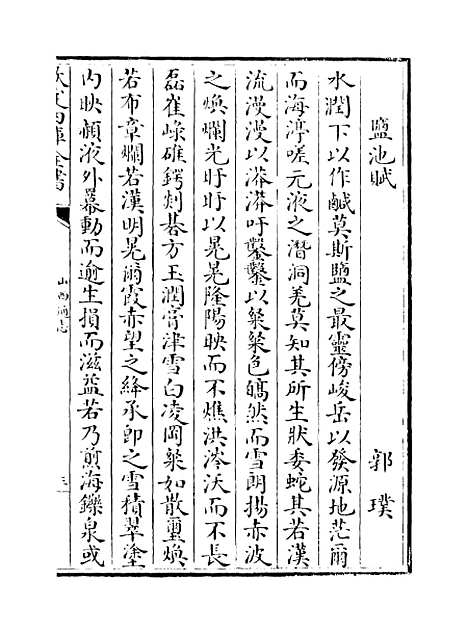 鹽池賦
郭璞
水潤下以作鹹莫斯鹽之最靈傍峻岳以發源地茫爾
而海渟嗟元液之潛洞羌莫知其所生狀委蛇其若漢
流漫漫以漭漭吁鑿鑿以粲粲色皜然而雪朗揚赤波
之煥爛光旴旴以晃晃隆陽映而不燋洪涔沃而不長
磊崔嵂碓鍔剡碁方玉潤膏津雪白凌岡粲如散璽煥
若布章爛若漢明晃爾霞赤望之絳承即之雪積翠塗
内映頳液外羃動而逾生損而滋益若乃煎海鑠泉或
欽定四庫全書
山西通志
三